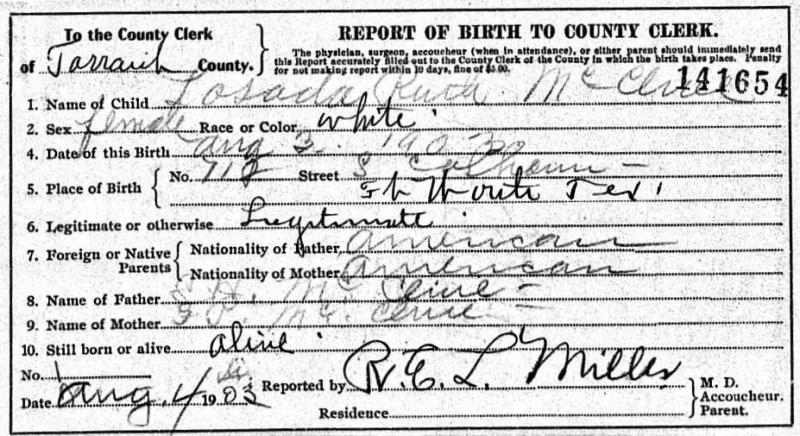 To the County Clerk
of Tarrant County.
REPORT OF BIRTH TO COUNTY CLERK.
The physician, surgeon, accoucheur (when in attendance), or either parent should immediately send
this Report accurately filled out to the County Clerk of the County in which the birth takes place. Penalty
for not making report within 10 days, fine of $5.00.
141654
1. Name of Child Losada Ruth McClure
2. Sex female Race or Color white
4. Date of this Birth aug 3. 190
5. Place of Birth No. 712 Street S Calhoun
Ft Worth Tex
6. Legitimate or otherwise Legitimate
7. Foreign or Native Parents Nationality of Father American
Nationality of Mother American
8. Name of Father H. McClure
9. Name of Mother McClure
10. Still born or alive alive
No.
Date Aug. 4 1903 Reported by R. E. L. Miller M. D.
Accoucheur.
Residence Parent.